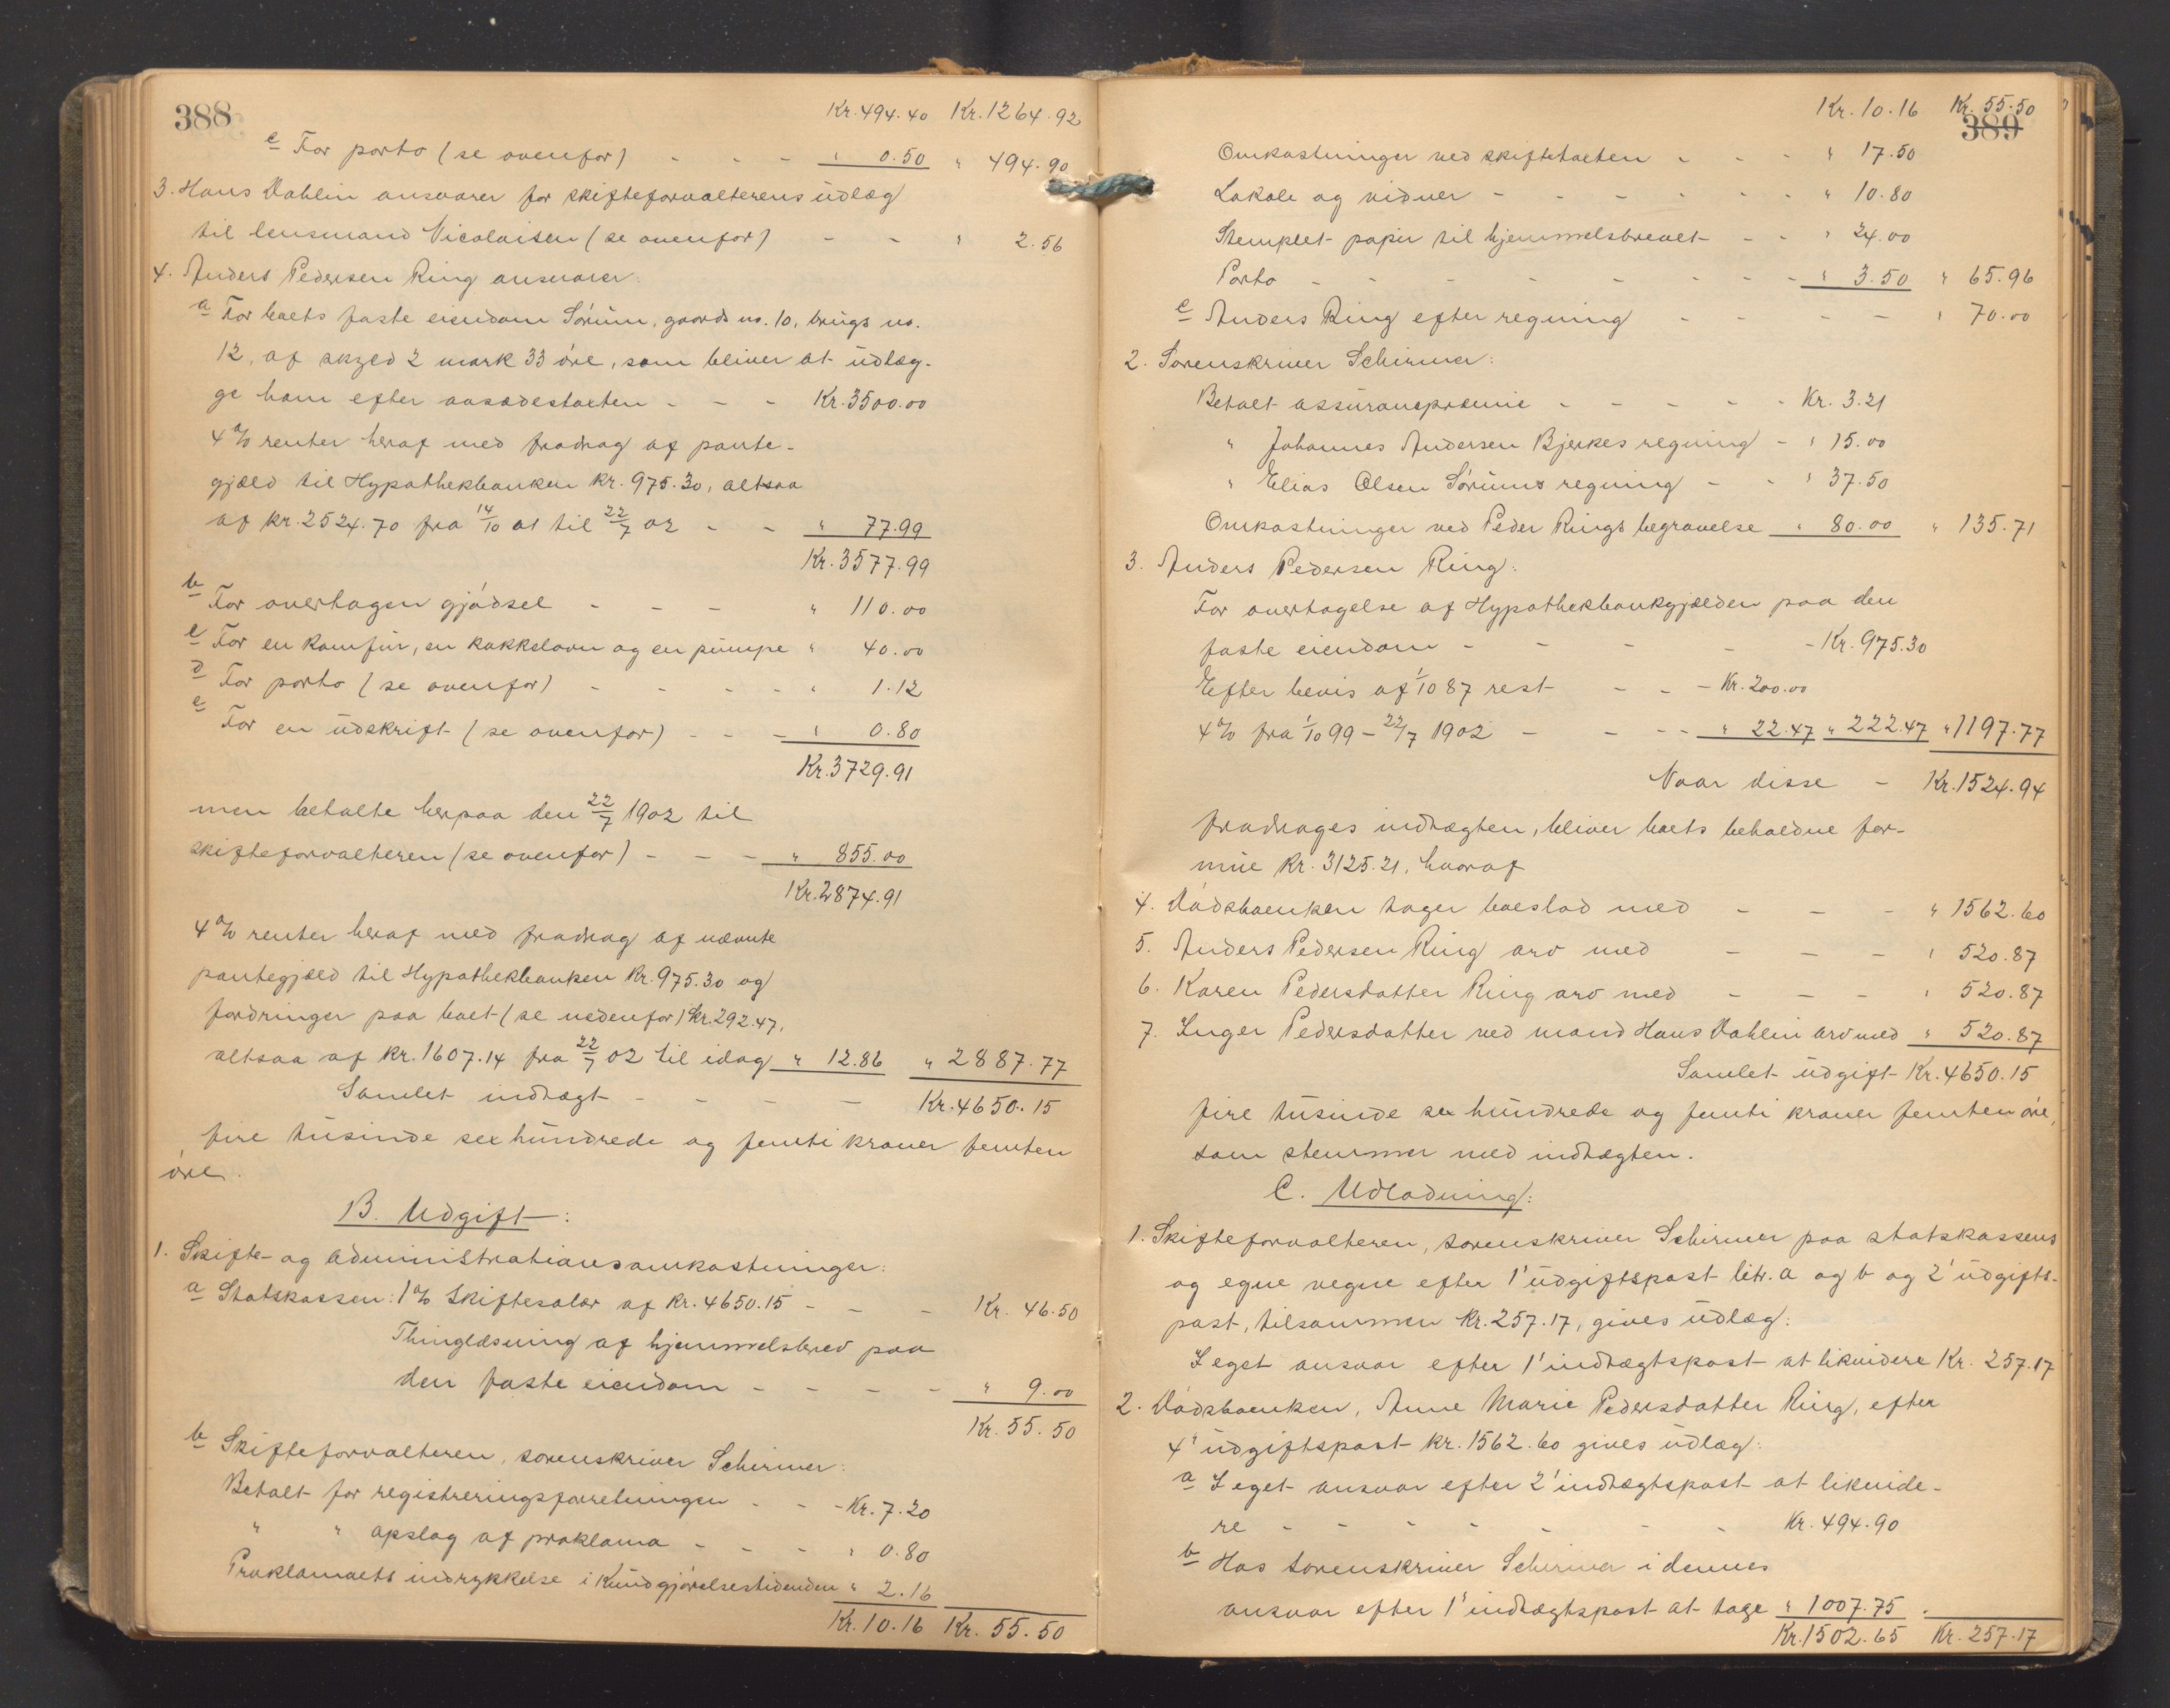 388
Kr. 494.40 Kr. 1264.92
c For porto (se ovenfor) - - - " 0.50 " 494.90
3. Hans Dahlin ansvarer for skifteforvalterens udlæg
til lensmand Nicolaisen (se ovenfor) - - " 2.56
4. Anders Pedersen Ring ansvarer:
a For boets faste eiendom Sörum, gaards no. 10, brugs no.
12, af skyld 2 mark 33 öre, som bliver at udlæg-
ge ham efter aasædestaxten - - - Kr. 3500.00
4 % renter heraf med fradrag af pante-
gjæld til Hypothekbanken kr. 975.30, altsaa
af kr. 2524.70 fra 14/10 01 til 22/7 02 - - " 77.99
Kr. 3577.99
b For overtagen gjödsel - - - " 110.00
c For en komfur, en kakkelovn og en pumpe " 40.00
d For porto (se ovenfor) - - - - " 1.12
e For en udskrift (se ovenfor) - - - " 0.80
Kr. 3729.91
men betalte herpaa den 22/7 1902 til
skifteforvalteren (se ovenfor) - - - " 855.00
Kr. 2874.91
4 % renter heraf med fradrag af nævnte
pantegjæld til Hypothekbanken kr. 975.30 og
fordringer paa boet (se nedenfor) kr. 292.47,
altsaa af kr. 1607.14 fra 22/7 02 til idag " 12.86 " 2887.77
Samlet indtægt - - - - Kr. 4650.15
fire tusinde sex hundrede og femti kroner femten
öre.
B. Udgift:
1. Skifte- og administrationsomkostninger:
a Statskassen: 1 % skiftesalær af kr. 4650.15 - - - Kr. 46.50
Thinglæsning af hjemmelsbrev paa
den faste eiendom - - - - " 9.00
Kr. 55.50
b Skifteforvalteren, sorenskriver Schirmer:
Betalt for registreringsforretningen - - - Kr. 7.20
" " opslag af proklama - - - " 0.80
Proklamaets indrykkelse i Kundgjörelsestidenden " 2.16
Kr. 10.16 Kr. 55.50
Kr. 10.16 Kr. 55.50
389
Omkostninger ved skiftetaxten - - - " 17.50
Lokale og vidner - - - - - - " 10.80
Stemplet papir til hjemmelsbrevet - - " 24.00
Porto - - - - - - - - " 3.50 " 65.96
c Anders Ring efter regning - - - - " 70.00
2. Sorenskriver Schirmer:
Betalt assurancepræmie - - - - - Kr. 3.21
" Johannes Andersen Bjerkes regning - " 15.00
" Elias Olsen Sörums regning - - " 37.50
Omkostninger ved Peder Rings begravelse " 80.00 " 135.71
3. Anders Pedersen Ring:
For overtagelse af Hypothekbankgjælden paa den
faste eiendom - - - - - Kr. 975.30
Efter bevis af 1/10 87 rest - - - Kr. 200.00
4 % fra 1/10 99 - 22/7 1902 - - - - " 22.47 " 222.47 " 1197.77
Naar disse - Kr. 1524.94
fradrages indtægten, bliver boets beholdne for-
mue kr. 3125.21, hvoraf
4. Dödsboenken tager boeslod med - - - " 1562.60
5. Anders Pedersen Ring arv med - - - " 520.87
6. Karen Pedersdatter Ring arv med - - - " 520.87
7. Inger Pedersdatter ved mand Hans Dahlin arv med " 520.87
Samlet udgift Kr. 4650.15
fire tusinde sex hundrede og femti kroner femten öre,
som stemmer med indtægten.
C. Udlodning:
1. Skifteforvalteren, sorenskriver Schirmer paa statskassens
og egne vegne efter 1' udgiftspost litr. a og b og 2' udgifts-
post, tilsammen kr. 257.17, gives udlæg:
I eget ansvar efter 1' indtægtspost at likvidere Kr. 257.17
2. Dödsboenken, Anne Marie Pedersdatter Ring, efter
4' udgiftspost kr. 1562.60 gives udlæg:
a I eget ansvar efter 2' indtægtspost at likvide-
re - - - - - - - Kr. 494.90
b Hos sorenskriver Schirmer i dennes
ansvar efter 1' indtægtspost at tage " 1007.75
Kr. 1502.65 Kr. 257.17